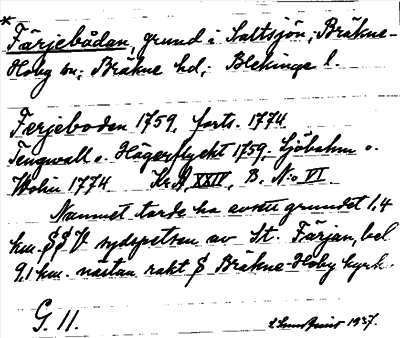 * Färjebådan, grund i Saltsjön, Bräkne-
Hoby sn; Bräkne hd; Blekinge l.
Ferjeboden 1759, forts. 1774
Tengwall o. Hägerflycht 1759; Sjöbohm o.
Wohn 1774 Kr A XXIV, B. N:o VI
Namnet torde ha avsett grundet 1,4
km. SSV sydspetsen av St. Färjan, bel
9,1 km. nästan rakt S Bräkne-Hoby kyrk.
G. 11. 1937.